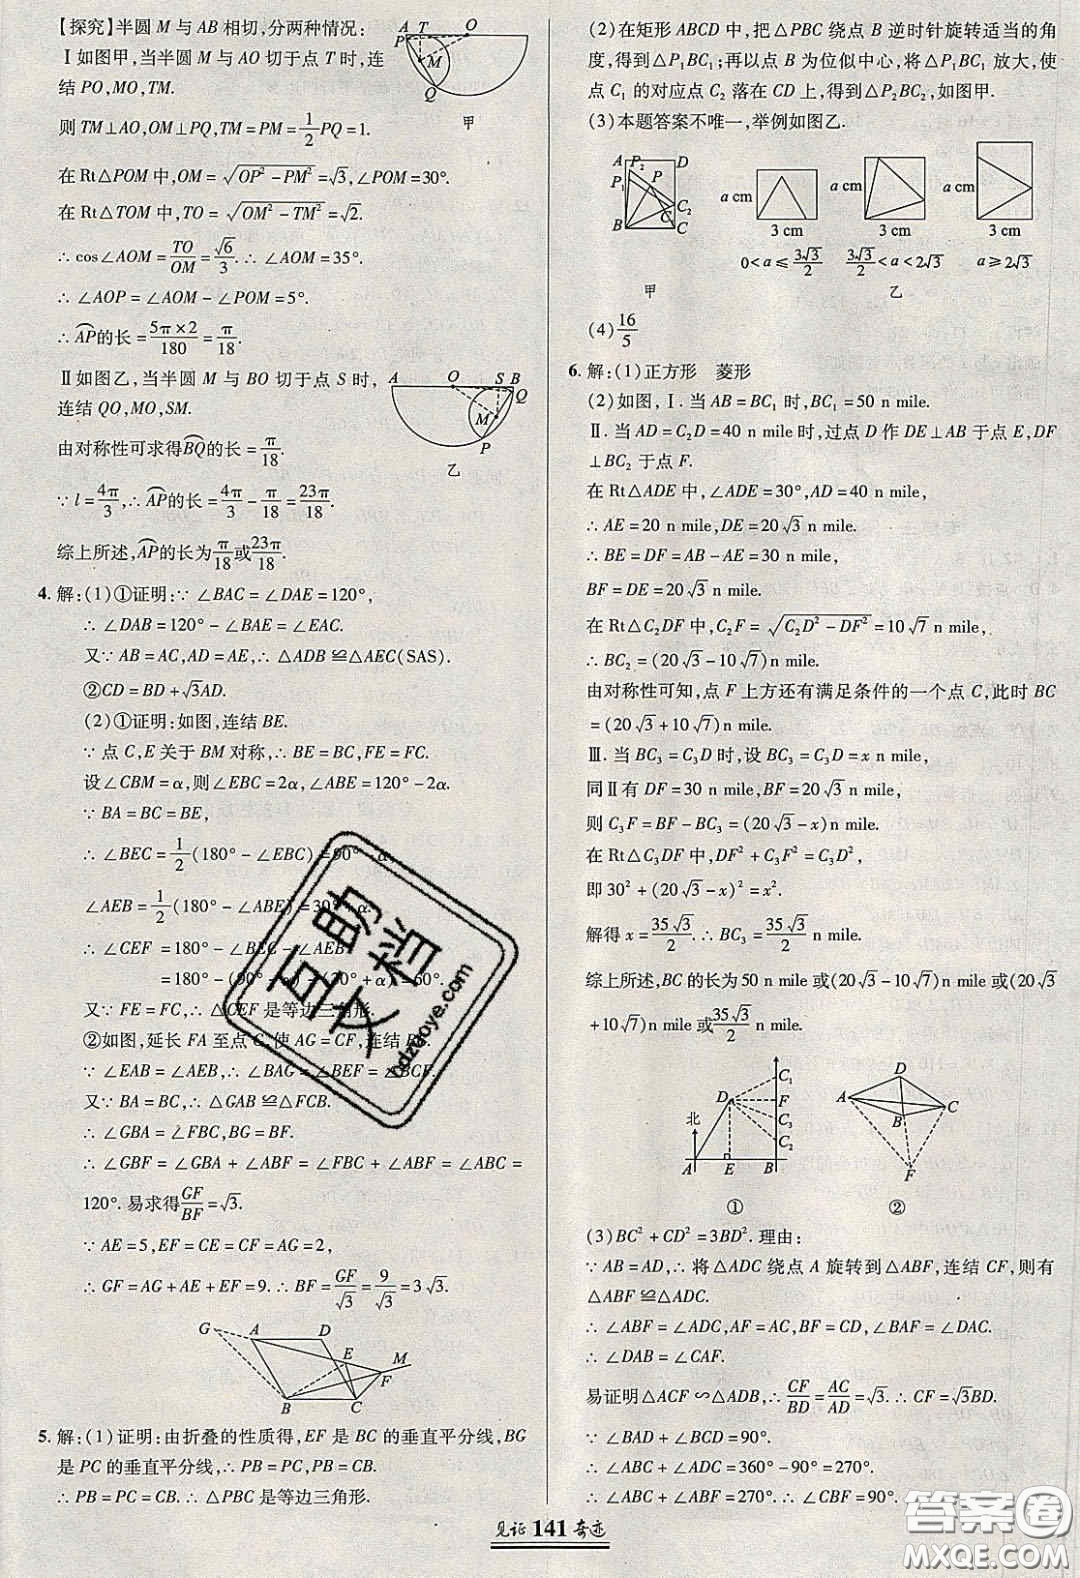 【探究】半圆 M 与 AB 相切,分两种情况:
Ⅰ如图甲,当半圆 M 与 AO 切于点 T 时,连
结 PO,MO,TM.
则 TM⊥AO,OM⊥PQ,TM=PM=1/2PQ=1.
在 Rt△POM 中,OM=√(OP²-PM²)=√3,∠POM=30°.
在 Rt△TOM 中,TO=√(OM²-TM²)=√2.
∴cos∠AOM=TO/OM=√6/3.∴∠AOM=35°.
∴∠AOP=∠AOM-∠POM=5°.
∴AP⌒的长=5π×2/180=π/18.
Ⅱ如图乙,当半圆 M 与 BO 切于点 S 时,
连结 QO,MO,SM.
由对称性可求得BQ⌒的长=π/18.
∵l=4π/3,∴AP⌒的长=4π/3-π/18=23π/18.
综上所述,AP⌒的长为π/18或23π/18.
A P T O M Q 甲
A O S B Q M P 乙
4. 解:(1)①证明:∵∠BAC=∠DAE=120°,
∴∠DAB=120°-∠BAE=∠EAC.
又∵AB=AC,AD=AE,∴△ADB≌△AEC(SAS).
②CD=BD+√3AD.
(2)①证明:如图,连结 BE.
∵点 C,E 关于 BM 对称,∴BE=BC,FE=FC.
设∠CBM=α,则∠EBC=2α,∠ABE=120°-2α.
∵BA=BC=BE,
∴∠BEC=1/2(180°-∠EBC)=90°-α,
∠AEB=1/2(180°-∠ABE)=30°+α.
∴∠CEF=180°-∠BEC-∠AEB
=180°-(90°-α)-(30°+α)=60°.
又∵FE=FC,∴△CEF 是等边三角形.
②如图,延长 FA 至点 G,使 AG=CF,连结 BG.
∵∠EAB=∠AEB,∴∠BAG=∠BEF=∠BCF.
又∵BA=BC,∴△GAB≌△FCB.
∴∠GBA=∠FBC,BG=BF.
∴∠GBF=∠GBA+∠ABF=∠FBC+∠ABF=∠ABC=
120°.易求得GF/BF=√3.
∵AE=5,EF=CE=CF=AG=2,
∴GF=AG+AE+EF=9.∴BF=GF/√3=9/√3=3√3.
G A D E M F B C
5. 解:(1)证明:由折叠的性质得,EF 是 BC 的垂直平分线,BG
是 PC 的垂直平分线,∴PB=PC,PB=CB.
∴PB=PC=CB.∴△PBC 是等边三角形.
(2)在矩形 ABCD 中,把△PBC 绕点 B 逆时针旋转适当的角
度,得到△P₁BC₁;再以点 B 为位似中心,将△P₁BC₁ 放大,使
点 C₁ 的对应点 C₂ 落在 CD 上,得到△P₂BC₂,如图甲.
(3)本题答案不唯一,举例如图乙.
A P₂ D P₁ P C₂ B C 甲
a cm 3 cm 0<a≤3√3/2
a cm 3 cm 3√3/2<a<2√3
a cm 3 cm a≥2√3
乙
(4)16/5
6. 解:(1)正方形 菱形
(2)如图,Ⅰ.当 AB=BC₁ 时,BC₁=50 n mile.
Ⅱ.当 AD=C₂D=40 n mile时,过点 D 作 DE⊥AB 于点 E,DF
⊥BC₂ 于点 F.
在 Rt△ADE 中,∠ADE=30°,AD=40 n mile,
∴AE=20 n mile,DE=20√3 n mile.
∴BE=DF=AB-AE=30 n mile,
BF=DE=20√3 n mile.
在 Rt△C₂DF 中,C₂F=√(C₂D²-DF²)=10√7 n mile,
∴BC₂=(20√3-10√7)n mile.
由对称性可知,点 F 上方还有满足条件的一个点 C,此时 BC
=(20√3+10√7)n mile.
Ⅲ.当 BC₃=C₃D 时,设 BC₃=C₃D=x n mile,
同Ⅱ有 DF=30 n mile,BF=20√3 n mile,
则 C₃F=BF-BC₃=(20√3-x)n mile.
在 Rt△C₃DF 中,DF²+C₃F²=C₃D²,
即 30²+(20√3-x)²=x².
解得 x=35√3/2.∴BC₃=35√3/2 n mile.
综上所述,BC 的长为 50 n mile 或(20√3-10√7)n mile 或(20√3
+10√7)n mile 或35√3/2 n mile.
北 D C₁ F C₃ C₂ A E B ①
D A B C F ②
(3)BC²+CD²=3BD².理由:
∵AB=AD,∴将△ADC 绕点 A 旋转到△ABF,连结 CF,则有
△ABF≌△ADC.
∴∠ABF=∠ADC,AF=AC,BF=CD,∠BAF=∠DAC.
∴∠DAB=∠CAF.
易证明△ACF∽△ADB,∴CF/BD=AC/AD=√3.∴CF=√3BD.
∵∠BAD+∠BCD=90°,
∴∠ABC+∠ADC=360°-90°=270°.
∴∠ABF+∠ABC=270°.∴∠CBF=90°.
见证 141 奇迹
互助文档
hdzuoye.com
答案圈
MXQE.COM